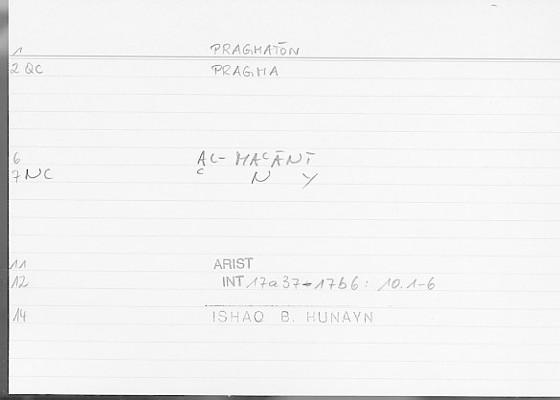 1 PRAGMATŌN
2 QC PRAGMA
6 AL-MAʿĀNĪ
7 NC ʿ N Y
11 ARIST
12 INT 17a37-17b6: 10.1-6
14 ISHAQ B. HUNAYN